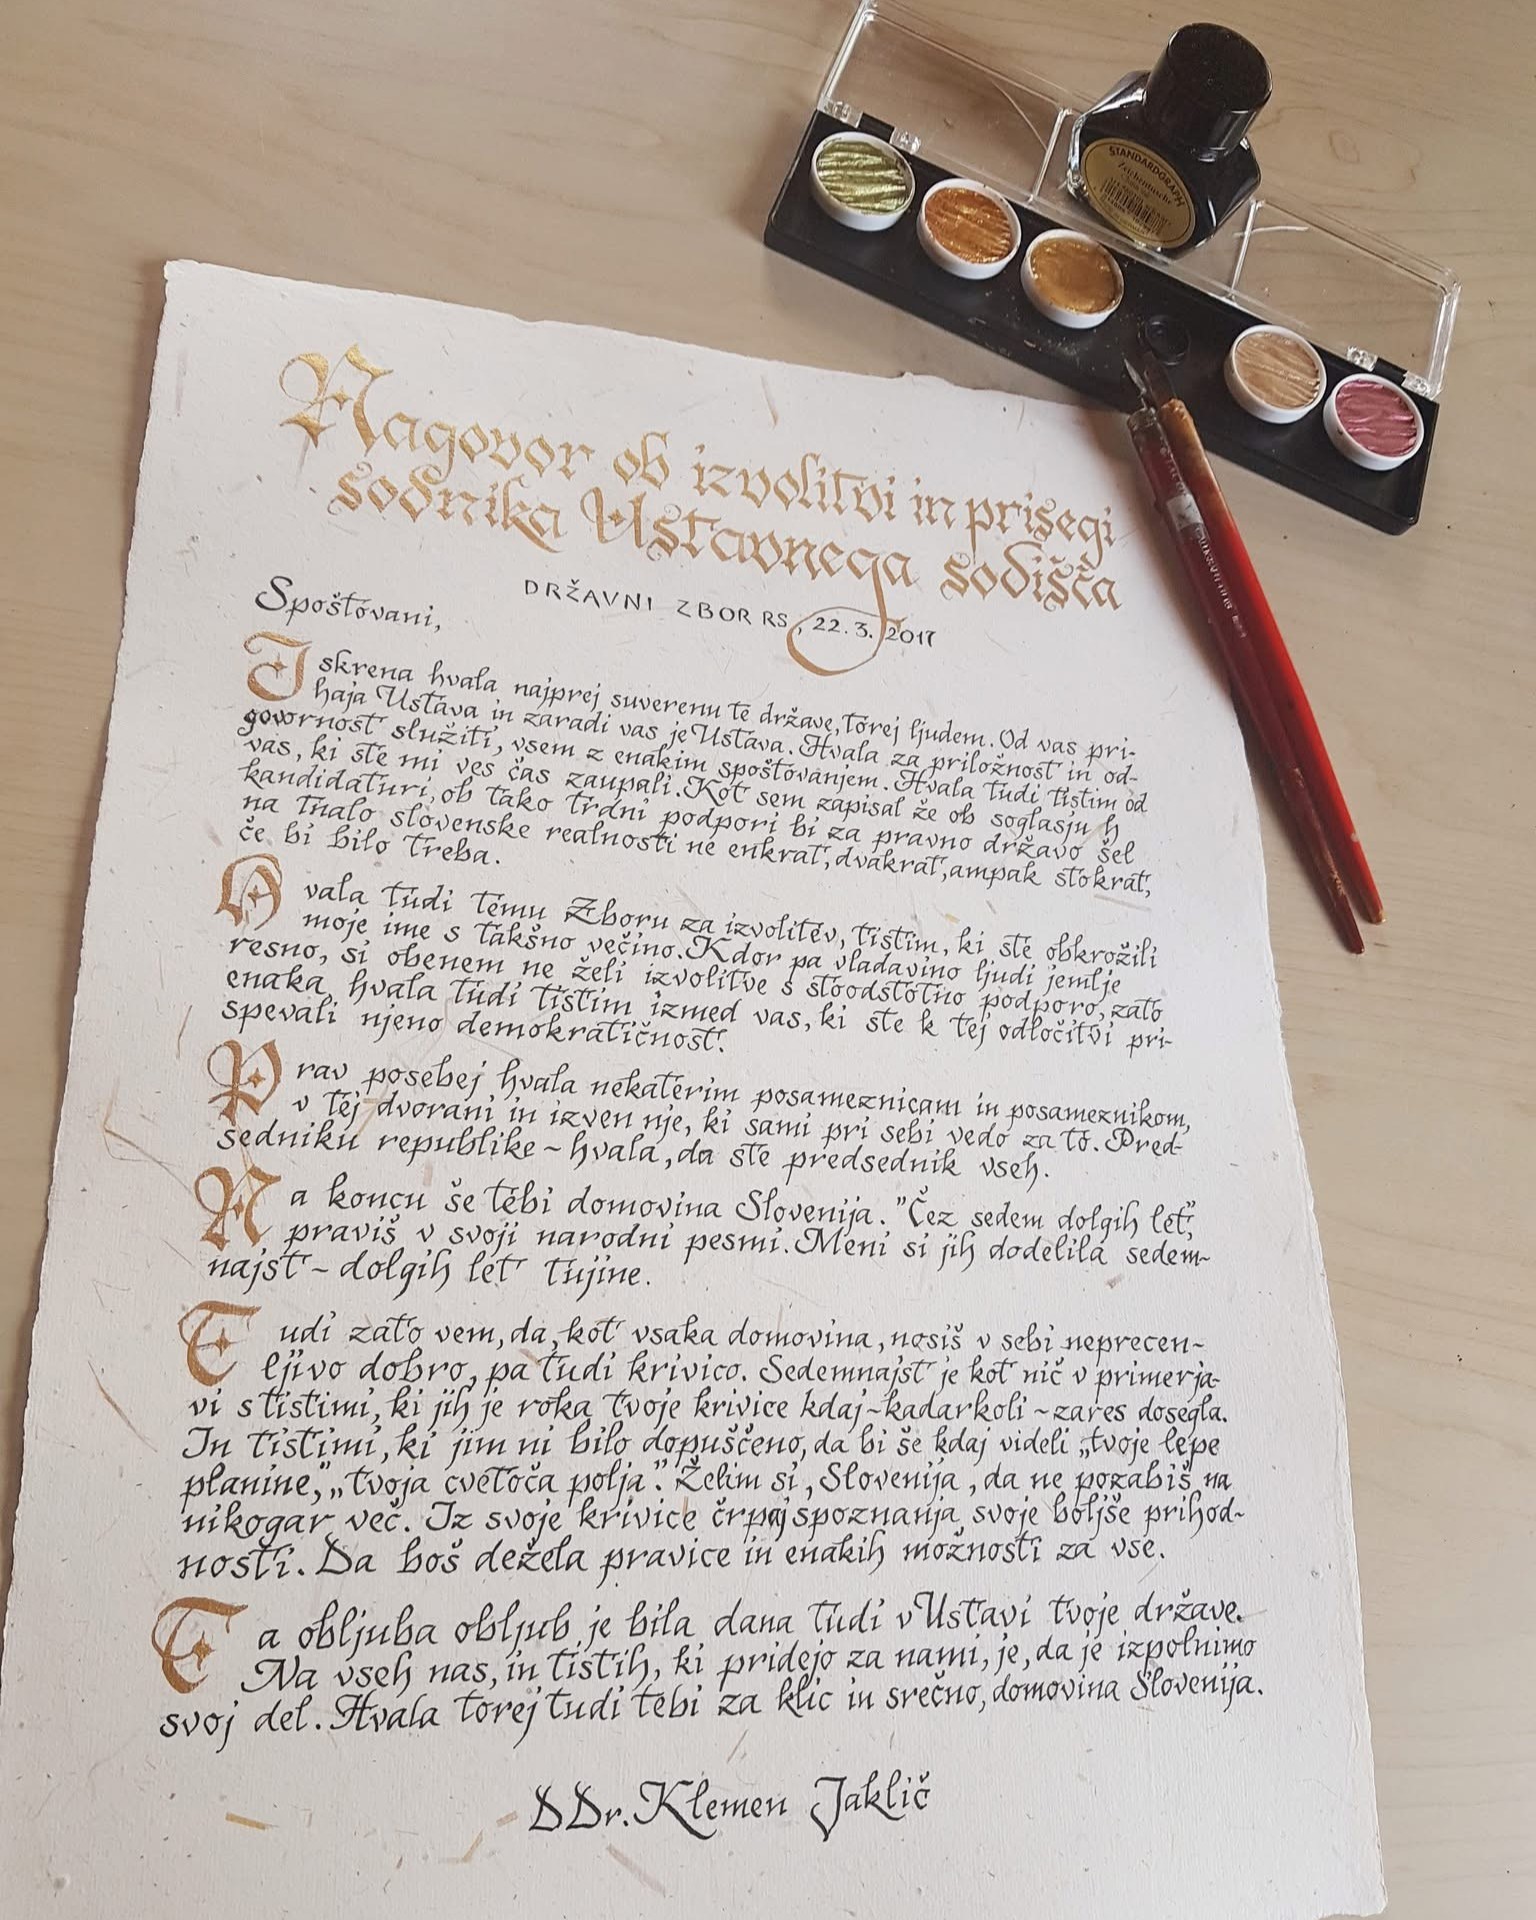 STANDARDGRAPH
Zeichentusche
Nagovor ob izvolitvi in prisegi
sodnika Ustavnega sodišča
DRŽAVNI ZBOR RS, 22.3.2017
Spoštovani,
Iskrena hvala najprej suverenu te države, torej ljudem. Od vas pri-
haja Ustava in zaradi vas je Ustava. Hvala za priložnost in od-
govornost služiti, vsem z enakim spoštovanjem. Hvala tudi tistim od
vas, ki ste mi ves čas zaupali. Kot sem zapisal že ob soglasju h
kandidaturi, ob tako trdni podpori bi za pravno državo šel
na tnalo slovenske realnosti ne enkrat, dvakrat, ampak stokrat,
če bi bilo treba.
vala tudi temu Zboru za izvolitev, tistim, ki ste obkrožili
moje ime s takšno večino. Kdor pa vladavino ljudi jemlje
resno, si obenem ne želi izvolitve s stoodstotno podporo, zato
enaka hvala tudi tistim izmed vas, ki ste k tej odločitvi pri-
spevali njeno demokratičnost.
Prav posebej hvala nekaterim posameznicam in posameznikom,
v tej dvorani in izven nje, ki sami pri sebi vedo za to. Pred-
sedniku republike ~ hvala, da ste predsednik vseh.
Na koncu še tebi domovina Slovenija. "Čez sedem dolgih let",
praviš v svoji narodni pesmi. Meni si jih dodelila sedem~
najst ~ dolgih let tujine.
Tudi zato vem, da, kot vsaka domovina, nosiš v sebi neprecen-
ljivo dobro, pa tudi krivico. Sedemnajst je kot nič v primerja-
vi s tistimi, ki jih je roka tvoje krivice kdaj~kadarkoli ~ zares dosegla.
In tistimi, ki jim ni bilo dopuščeno, da bi še kdaj videli „tvoje lepe
planine," „tvoja cvetoča polja". Želim si, Slovenija, da ne pozabiš na
nikogar več. Iz svoje krivice črpaj spoznanja svoje boljše prihod-
nosti. Da boš dežela pravice in enakih možnosti za vse.
Ta obljuba obljub je bila dana tudi v Ustavi tvoje države.
Na vseh nas, in tistih, ki pridejo za nami, je, da je izpolnimo
svoj del. Hvala torej tudi tebi za klic in srečno, domovina Slovenija.
DDr. Klemen Jaklič